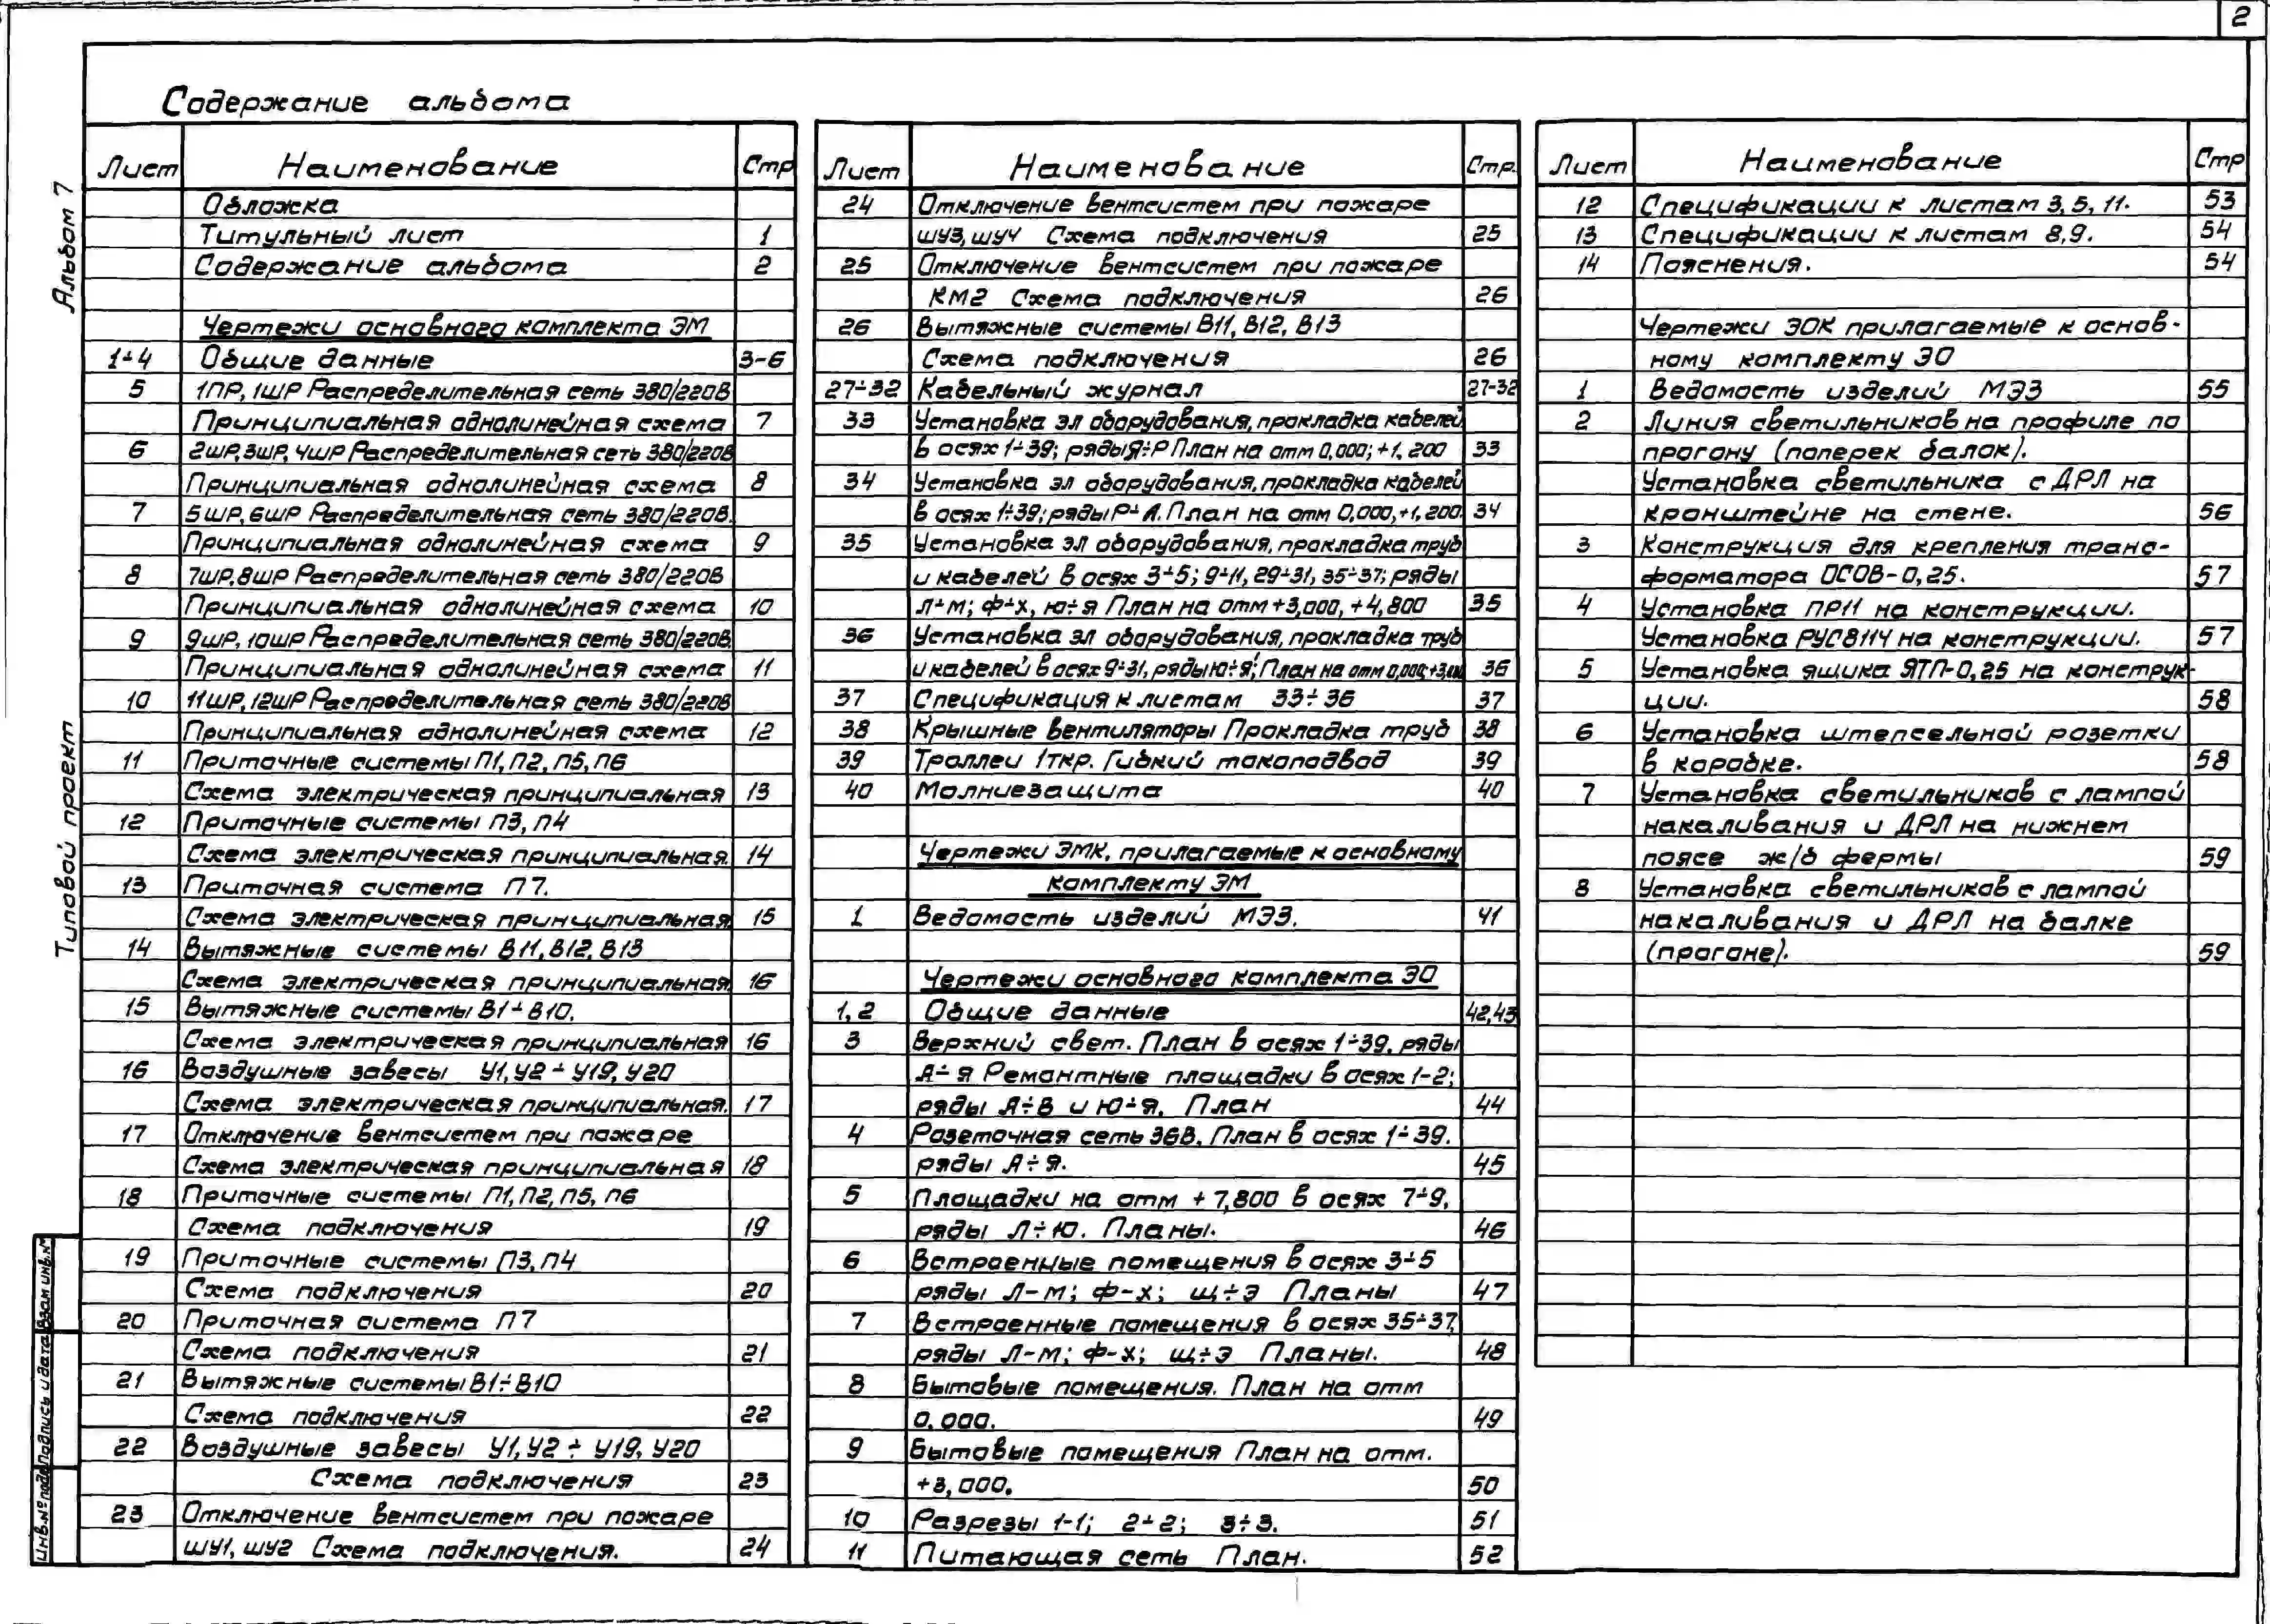 2
Содержание альбома
Альбом 7
Типовой проект
Лист Наименование Стр
Обложка
Титульный лист 1
Содержание альбома 2
Чертежи основного комплекта ЭМ
1÷4 Общие данные 3-6
5 1ПР, 1ШР Распределительная сеть 380/220В
Принципиальная однолинейная схема 7
6 2ШР, 3ШР, 4ШР Распределительная сеть 380/220В
Принципиальная однолинейная схема 8
7 5ШР, 6ШР Распределительная сеть 380/220В.
Принципиальная однолинейная схема 9
8 7ШР, 8ШР Распределительная сеть 380/220В
Принципиальная однолинейная схема 10
9 9ШР, 10ШР Распределительная сеть 380/220В.
Принципиальная однолинейная схема 11
10 11ШР, 12ШР Распределительная сеть 380/220В
Принципиальная однолинейная схема 12
11 Приточные системы П1, П2, П5, П6
Схема электрическая принципиальная 13
12 Приточные системы П3, П4
Схема электрическая принципиальная. 14
13 Приточная система П7.
Схема электрическая принципиальная. 15
14 Вытяжные системы В11, В12, В13
Схема электрическая принципиальная. 16
15 Вытяжные системы В1÷В10.
Схема электрическая принципиальная 16
16 Воздушные завесы У1, У2÷У19, У20
Схема электрическая принципиальная. 17
17 Отключение вентсистем при пожаре
Схема электрическая принципиальная 18
18 Приточные системы П1, П2, П5, П6
Схема подключения 19
19 Приточные системы П3, П4
Схема подключения 20
20 Приточная система П7
Схема подключения 21
21 Вытяжные системы В1÷В10
Схема подключения 22
22 Воздушные завесы У1, У2÷У19, У20
Схема подключения 23
23 Отключение вентсистем при пожаре
ШУ1, ШУ2 Схема подключения. 24
Лист Наименование Стр.
24 Отключение вентсистем при пожаре
ШУ3, ШУ4 Схема подключения 25
25 Отключение вентсистем при пожаре
КМ2 Схема подключения 26
26 Вытяжные системы В11, В12, В13
Схема подключения 26
27÷32 Кабельный журнал 27-32
33 Установка эл оборудования, прокладка кабелей
в осях 1÷39; ряды Я÷Р План на отм 0,000; +1,200 33
34 Установка эл оборудования, прокладка кабелей
в осях 1÷39; ряды Р÷А. План на отм 0,000, +1,200. 34
35 Установка эл оборудования, прокладка труб
и кабелей в осях 3÷5; 9÷11, 29÷31, 35÷37; ряды
Л÷М; Ф÷Х, Ю÷Я План на отм +3,000, +4,800 35
36 Установка эл оборудования, прокладка труб
и кабелей в осях 9÷31, ряды Ю÷Я; План на отм 0,000; 36
37 Спецификация к листам 33÷36 37
38 Крышные вентиляторы Прокладка труб 38
39 Троллеи 1ткр. Гибкий токоподвод 39
40 Молниезащита 40
Чертежи ЭМК, прилагаемые к основному
комплекту ЭМ
1 Ведомость изделий МЭЗ. 41
Чертежи основного комплекта ЭО
1, 2 Общие данные 42,43
3 Верхний свет. План в осях 1÷39, ряды
А÷Я Ремонтные площадки в осях 1-2;
ряды А÷В и Ю÷Я. План 44
4 Розеточная сеть 36В. План в осях 1÷39.
ряды А÷Я. 45
5 Площадки на отм +7,800 в осях 7÷9,
ряды Л÷Ю. Планы. 46
6 Встроенные помещения в осях 3÷5
ряды Л-М; Ф-Х; Щ÷Э Планы 47
7 Встроенные помещения в осях 35÷37,
ряды Л-М; Ф-Х; Щ÷Э Планы. 48
8 Бытовые помещения. План на отм
0,000. 49
9 Бытовые помещения План на отм.
+3,000. 50
10 Разрезы 1-1; 2÷2; 3÷3. 51
11 Питающая сеть План. 52
Лист Наименование Стр
12 Спецификации к листам 3, 5, 11. 53
13 Спецификации к листам 8, 9. 54
14 Пояснения. 54
Чертежи ЭОК прилагаемые к основ-
ному комплекту ЭО
1 Ведомость изделий МЭЗ 55
2 Линия светильников на профиле по
прогону (поперек балок).
Установка светильника с ДРЛ на
кронштейне на стене. 56
3 Конструкция для крепления транс-
форматора ОСОВ-0,25. 57
4 Установка ПР11 на конструкции.
Установка РУС8114 на конструкции. 57
5 Установка ящика ЯТП-0,25 на конструк-
ции. 58
6 Установка штепсельной розетки
в коробке. 58
7 Установка светильников с лампой
накаливания и ДРЛ на нижнем
поясе ж/б фермы 59
8 Установка светильников с лампой
накаливания и ДРЛ на балке
(прогоне). 59
Взам инв.№
Подпись и дата
Инв.№ подл